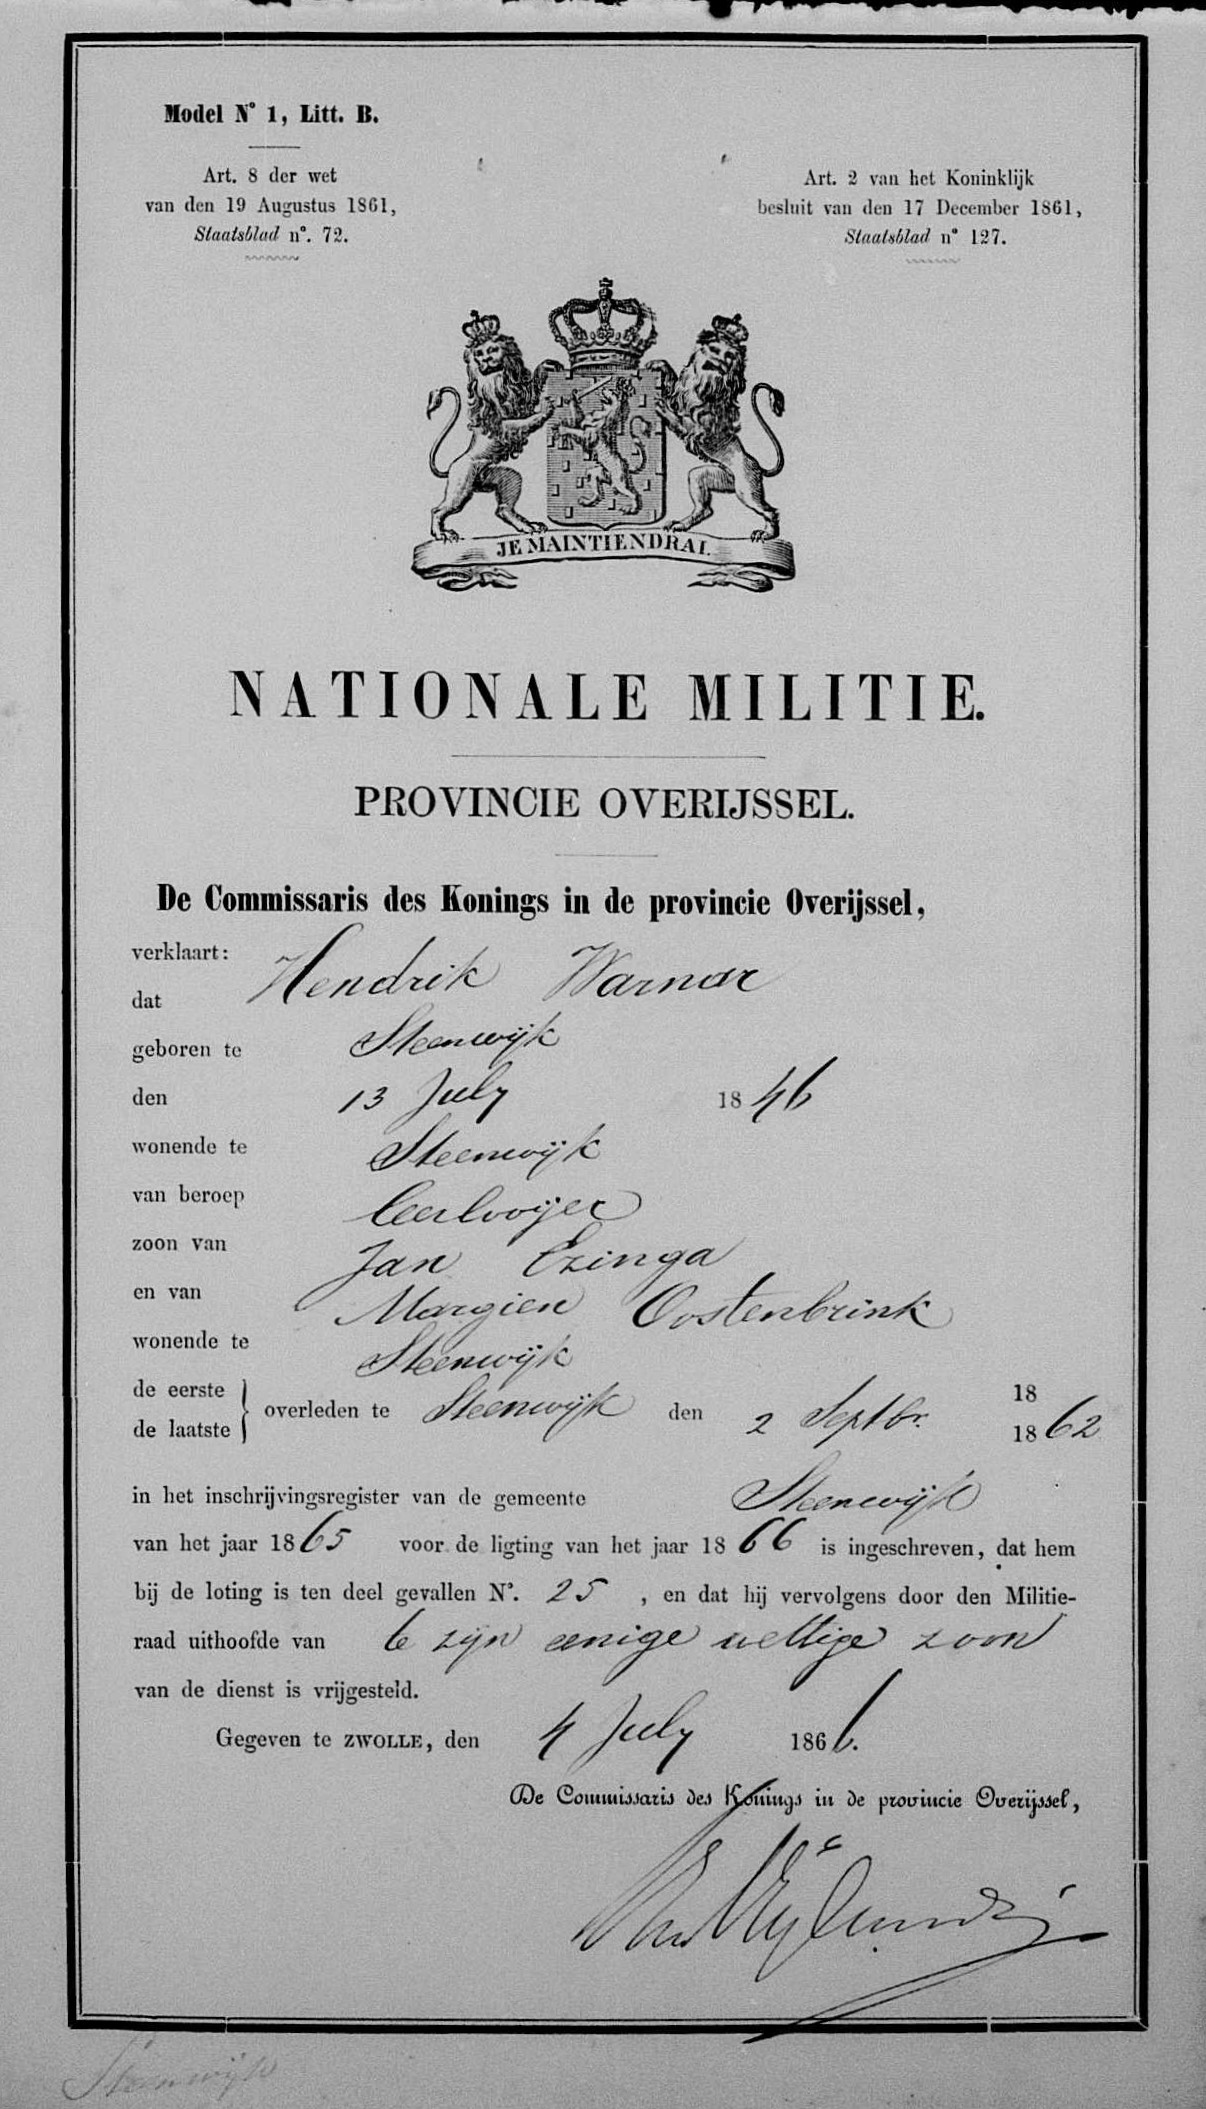 Model N° 1, Litt. B.
Art. 8 der wet
van den 19 Augustus 1861,
Staatsblad n°. 72.
Art. 2 van het Koninklijk
besluit van den 17 December 1861,
Staatsblad n° 127.
JE MAINTIENDRAI.
NATIONALE MILITIE.
PROVINCIE OVERIJSSEL.
De Commissaris des Konings in de provincie Overijssel,
verklaart:
dat Hendrik Warnar
geboren te Steenwijk
den 13 July 1846
wonende te Steenwijk
van beroep leerlooijer
zoon van Jan Ezinga
en van Margien Oostenbrink
wonende te Steenwijk
de eerste 18
de laatste } overleden te Steenwijk den 2 Septbr. 1862
in het inschrijvingsregister van de gemeente Steenwijk
van het jaar 1865 voor de ligting van het jaar 1866 is ingeschreven, dat hem
bij de loting is ten deel gevallen N°. 25, en dat hij vervolgens door den Militie-
raad uithoofde van te zijn eenige wettige zoon
van de dienst is vrijgesteld.
Gegeven te ZWOLLE, den 4 July 1866.
De Commissaris des Konings in de provincie Overijssel,
Steenwijk